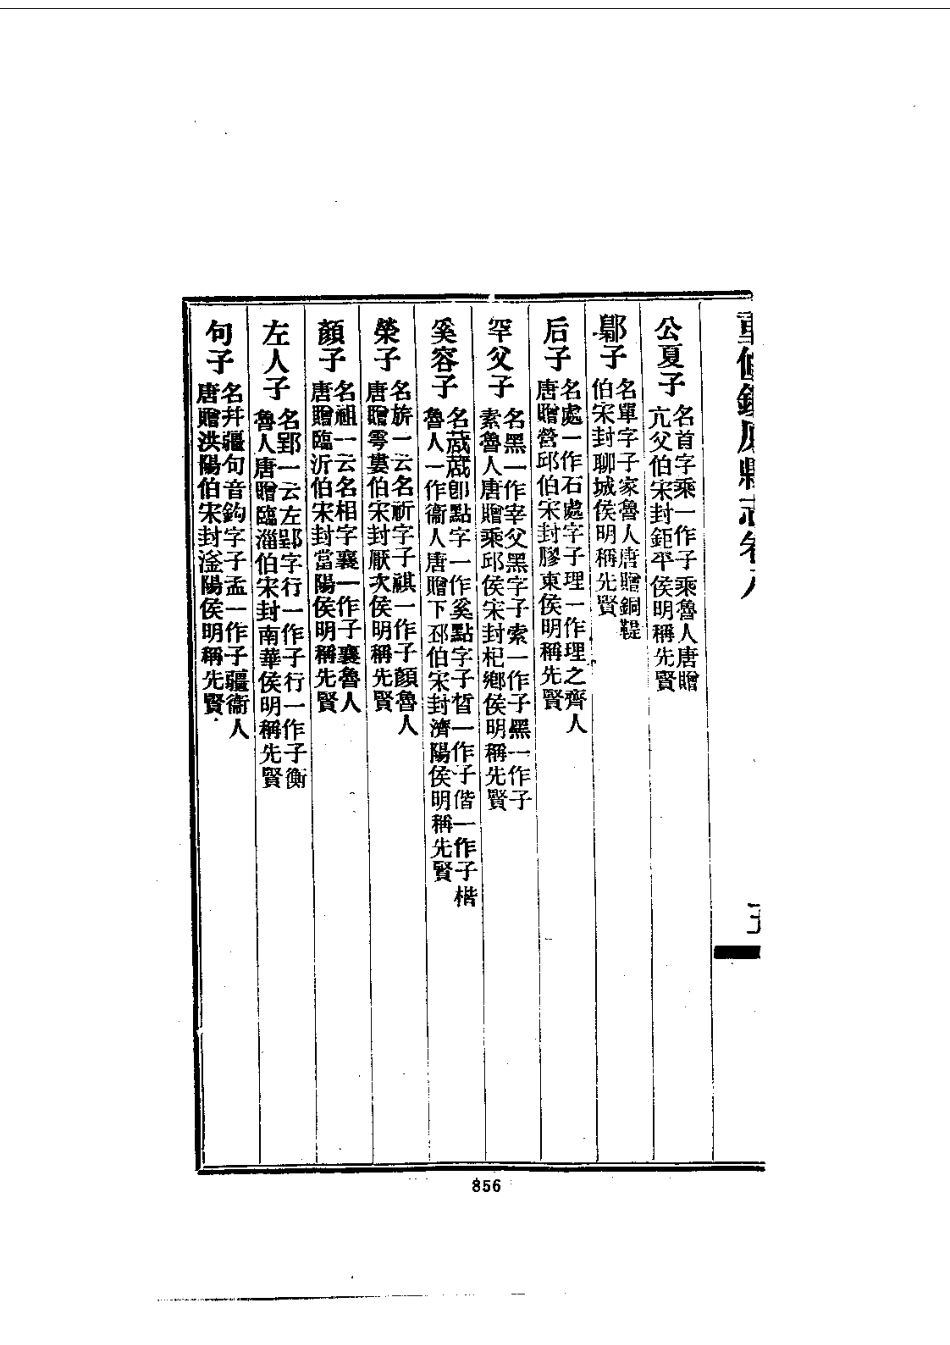 重修鎮原縣志卷八
公夏子 名首字乘一作子乘魯人唐贈
亢父伯宋封鉅平侯明稱先賢
鄡子 名單字子家魯人唐贈銅鞮
伯宋封聊城侯明稱先賢
后子 名處一作石處字子理一作理之齊人
唐贈營邱伯宋封膠東侯明稱先賢
罕父子 名黑一作宰父黑字子索一作子黑一作子
素魯人唐贈乘邱侯宋封杞鄉侯明稱先賢
奚容子 名蒧蒧卽點字一作奚點字子晳一作子偕一作子楷
魯人一作衞人唐贈下邳伯宋封濟陽侯明稱先賢
榮子 名旂一云名祈字子祺一作子顏魯人
唐贈雩婁伯宋封厭次侯明稱先賢
顏子 名祖一云名相字襄一作子襄魯人
唐贈臨沂伯宋封富陽侯明稱先賢
左人子 名郢一云左郢字行一作子行一作子衡
魯人唐贈臨淄伯宋封南華侯明稱先賢
句子 名井疆句音鈎字子孟一作子疆衞人
唐贈洪陽伯宋封滏陽侯明稱先賢
856